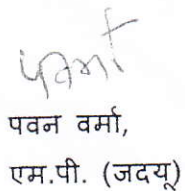 पवन वर्मा,
एम.पी. (जदयू)